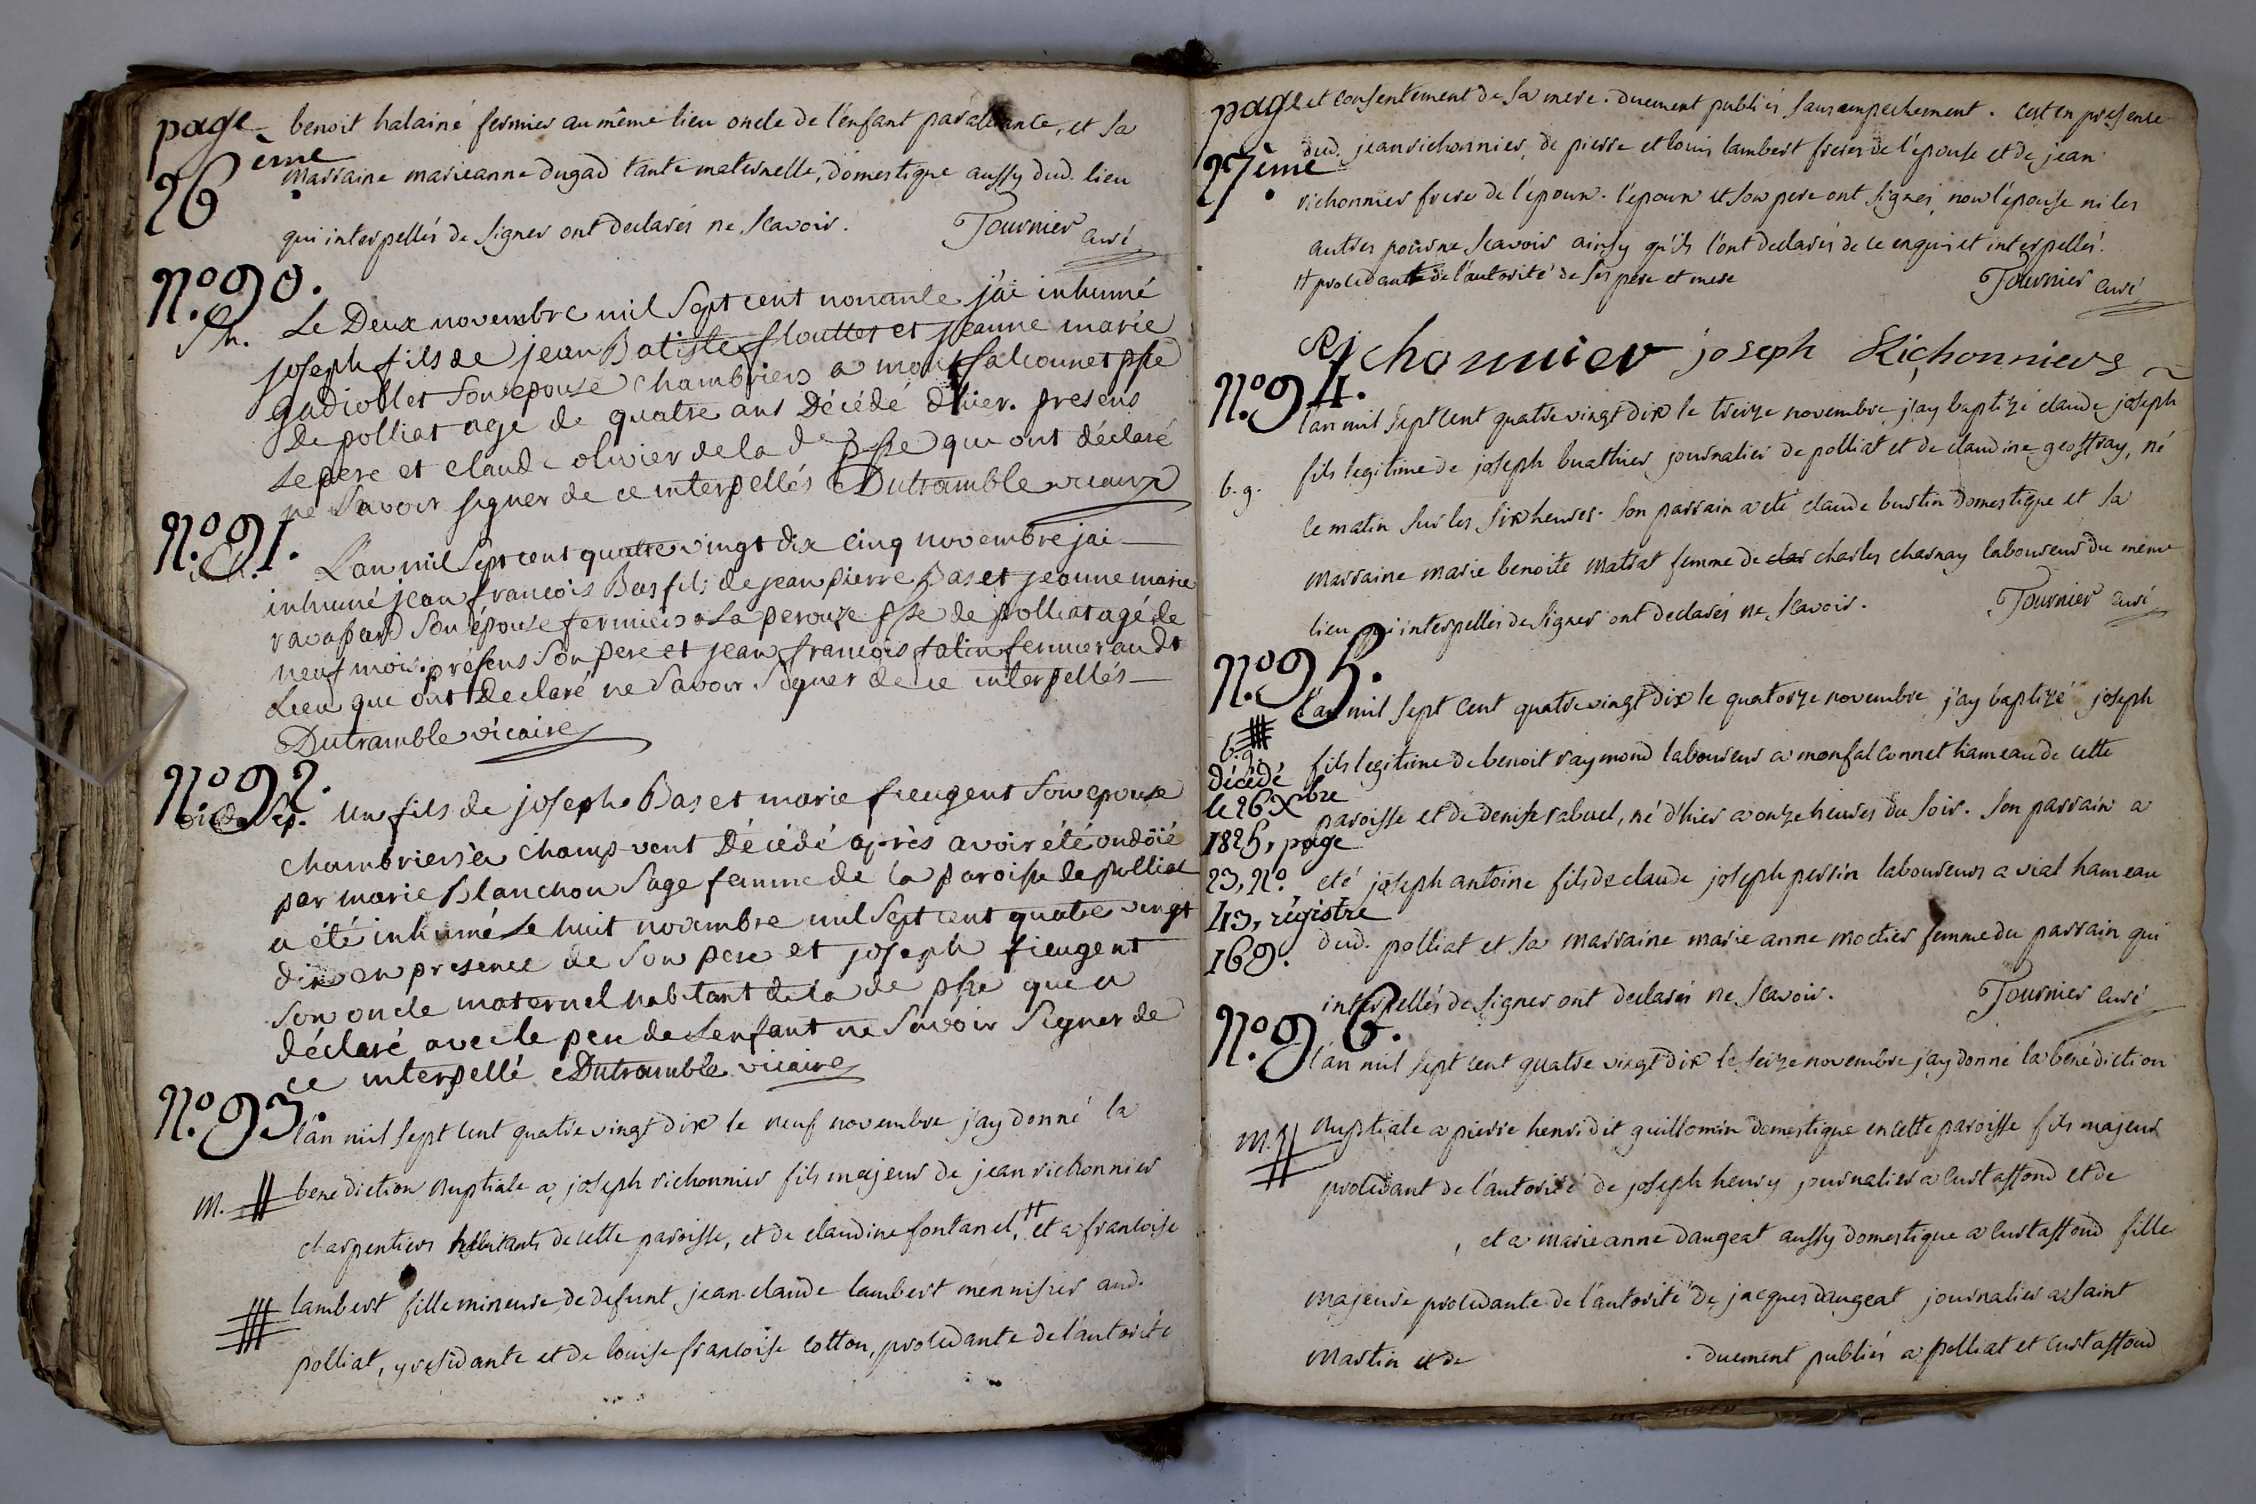 page 26ème
benoit halainé fermier au même lieu oncle de l'enfant par alliance, et sa
marraine marieanne dugad tante maternelle, domestique aussy dud. lieu
qui interpellés de signer ont declarés ne scavoir. Tournier curé
N.º 90.
Le Deux novembre mil sept cent nonante j'ai inhumé
joseph fils de jean Batiste flouttet et jeanne marie
gudiollet son epouse chambriers a montfalconnet psse
De polliat age de quatre ans Décédé d'hier. presens
Le pere et claude olivier de la de psse que ont déclaré
ne savoir signer de ce interpellés Dutramble vicaire
N.º 91.
L'an mil sept cent quatre vingt dix cinq novembre jai
inhumé jean francois Bas fils de jean pierre Bas et jeanne marie
son épouse fermiers a La perouze psse de polliat agé de
neuf mois. présens son pere et jean francois fatin fermier audt
Lieu que ont declaré ne savoir signer de ce interpellés
Dutramble vicaire
N.º 92.
un fils de joseph Bas et marie fieugent son epouse
chambriers a champ vent Décédé après avoir été ondoïé
par marie Blanchon sage femme de la paroisse de polliat
a été inhumé Le huit novembre mil sept cent quatre vingt
dix en presence de son pere et joseph fieugent
son oncle maternel habitant de la de psse que a
déclaré avec le pere de L'enfant ne savoir signer de
ce interpellé Dutramble vicaire
N.º 93.
l'an mil sept cent quatre vingt dix le neuf novembre j'ay donné la
m. benediction nuptiale a joseph richonnier fils majeur de jean richonnier
charpentiers habitants de cette paroisse, et de claudine fontanel, # et a francoise
lambert fille mineure de defunt jean claude lambert mennisier aud.
polliat, y residante et de louise francoise cotton, procedante de l'autorité
page 27ème
et consentement de sa mere. duement publiés sans empechement. cest en presence
dud. jean richonnier, de pierre et louis lambert freres de l'epouse et de jean
richonnier frere de l'epoux. l'epoux et son pere ont signés, non l'épouse ni les
autres pour ne scavoir ainsy qu'ils l'ont declarés de ce enquis et interpellés.
# procedant de l'autorité de ses pere et mere Tournier curé
Richonnier joseph Richonniers
N.º 94.
l'an mil sept cent quatre vingt dix le treize novembre j'ay baptizé claude joseph
b. g. fils legitime de joseph buathier journalier de polliat et de claudine geoffray, né
ce matin sur les six heures. son parrain a été claude burtin domestique et sa
marraine marie benoite mattat femme de clar charles charnay laboureur du meme
lieu qui interpellés de signer ont declarés ne scavoir. Tournier curé
N.º 95.
l'an mil sept cent quatre vingt dix le quatorze novembre j'ay baptizé joseph
b. g. fils legitime de benoit raymond laboureur a monfalconnet hameau de cette
décédé
le 26 Xbre
1825, page
23, N.º
43, régistre
169.
paroisse et de denise rabuel, né d'hier a onze heures du soir. son parrain a
eté joseph antoine fils de claude joseph perrin laboureurs a vial hameau
dud. polliat et sa marraine marie anne moctier femme du parrain qui
interpellés de signer ont declarés ne scavoir. Tournier curé
N.º 96.
l'an mil sept cent quatre vingt dix le seize novembre j'ay donné la benédiction
m. nuptiale a pierre henri dit guillomin domestique en cette paroisse fils majeur
procedant de l'autorité de joseph henry journalier a curtaffond et de
, et a marieanne daugeat aussy domestique a curtaffond fille
majeure procedante de l'autorité de jacques daugeat journalier a saint
martin et de . duement publiés a polliat et curtaffond